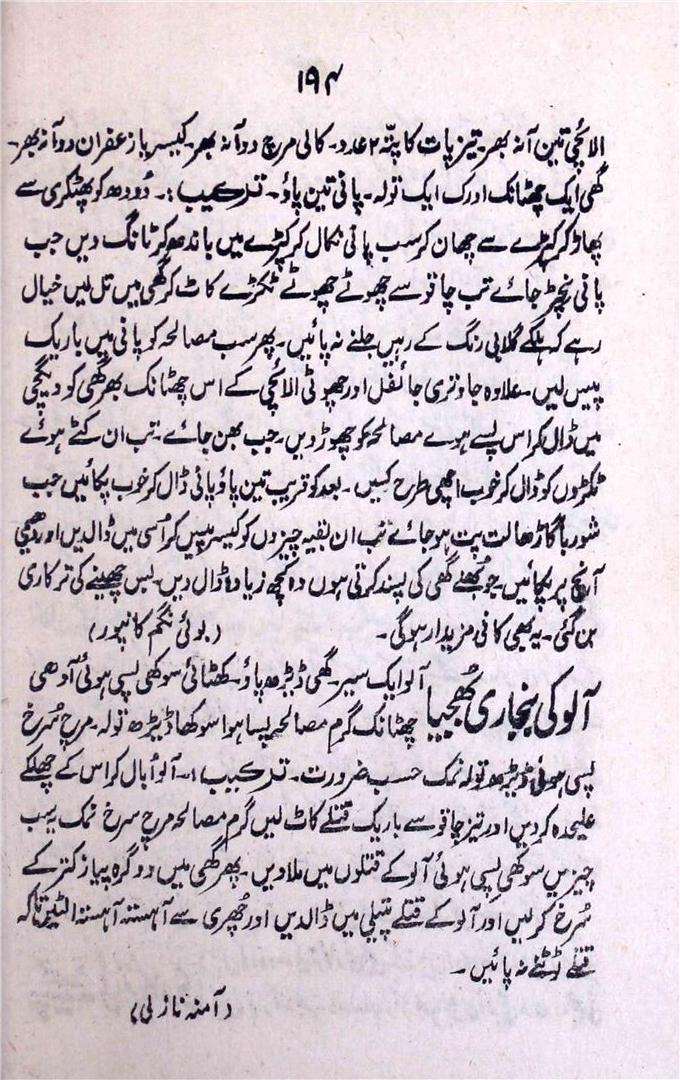 ۱۹۴
الائچی تین آنہ بھر۔ تیزپات کا پتّہ ۲ عدد۔ کالی مرچ دو آنہ بھر۔ کیسر یا زعفران دو آنہ بھر۔
گھی ایک چھٹانک ادرک ایک تولہ۔ پانی تین پاؤ۔ ترکیب:۔ دُودھ کو پھٹکری سے
پھاڑ کر کپڑے سے چھان کر سب پانی نکال کر کپڑے میں باندھ کر ٹانگ دیں جب
پانی نچڑ جائے تب چاقو سے چھوٹے چھوٹے ٹکڑے کاٹ کر گھی میں تل لیں خیال
رہے کہ ہلکے گلابی رنگ کے رہیں جلنے نہ پائیں۔ پھر سب مصالحہ کو پانی میں باریک
پیس لیں۔ علاوہ جاوتری جائفل اور چھوٹی الائچی کے اس چھٹانک بھر گھی کو دیگچی
میں ڈال کر اس پسے ہوے مصالحہ کو چھوڑ دیں۔ جب بھن جائے۔ تب ان کٹے ہوئے
ٹکڑوں کو ڈال کر خوب اچھی طرح کسیں۔ بعد کو قریب تین پاؤ پانی ڈال کر خوب پکائیں جب
شوربا گاڑھا لت پت ہو جائے تب ان بقیہ چیزوں کو کیسر پیس کر اسی میں ڈالدیں اور دھیمی
آنچ پر پکائیں۔ جو بہنے گھی کی پسند کرتی ہوں وہ کچھ زیادہ ڈال دیں۔ بس چھینے کی ترکاری
بن گئی۔ یہ بھی کافی مزیدار ہوگی۔ (بوئی نگم کانپور)
آلو کی بنجاری بُھجیا آلو ایک سیر۔ گھی ڈیڑھ پاؤ۔ کھٹائی سوکھی پسی ہوئی آدھی
چھٹانک گرم مصالحہ پسا ہوا سوکھا ڈیڑھ تولہ۔ مرچ سُرخ
پسی ہوئی ڈیڑھ تولہ نمک حسب ضرورت۔ ترکیب:۔ آلو اُبال کر اس کے چھلکے
علیحدہ کر دیں اور تیز چاقو سے باریک قتلے کاٹ لیں گرم مصالحہ مرچ سرخ نمک یہ سب
چیزیں سوکھی پسی ہوئی آلو کے قتلوں میں ملا دیں۔ پھر گھی میں دو گرہ پیاز کتر کے
سُرخ کر لیں اور آلو کے قتلے پتیلی میں ڈالدیں اور چُھری سے آہستہ آہستہ الٹیں تاکہ
قتلے ٹوٹنے نہ پائیں۔
(آمنہ نازلی)